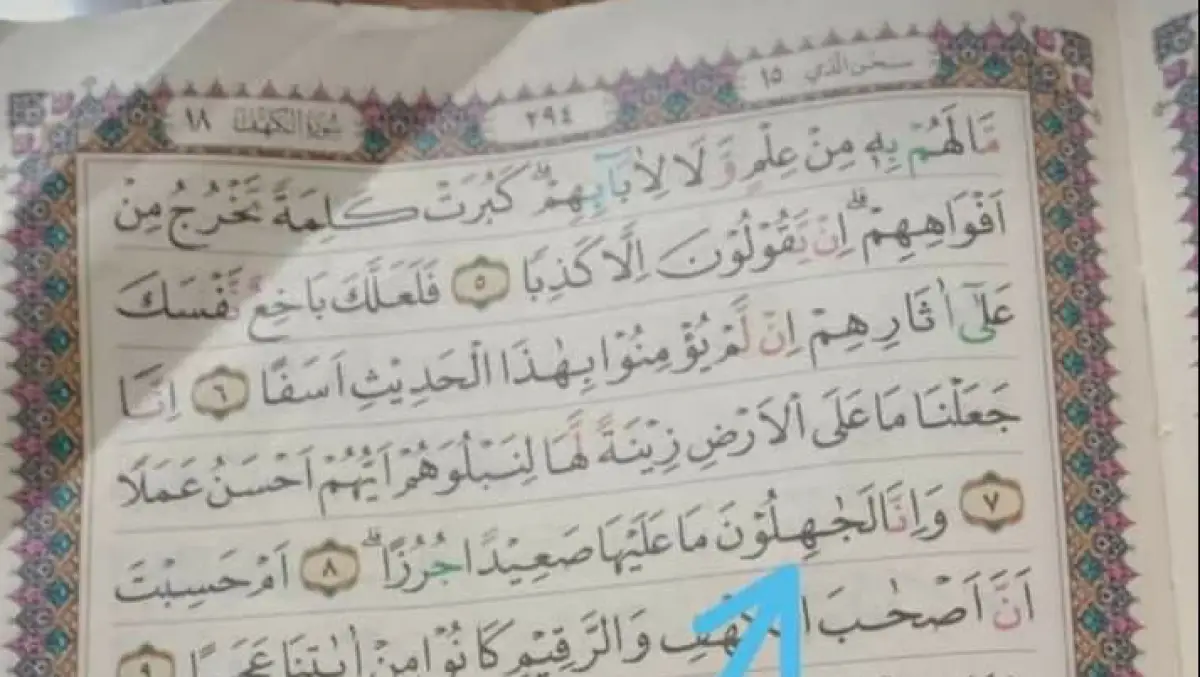 سبحن الذي ١٥
٢٩٤
سورة الكهف ١٨
مَا لَهُمْ بِهٖ مِنْ عِلْمٍ وَّلَا لِاٰبَاۤىِٕهِمْۗ كَبُرَتْ كَلِمَةً تَخْرُجُ مِنْ
اَفْوَاهِهِمْۗ اِنْ يَّقُوْلُوْنَ اِلَّا كَذِبًا ٥ فَلَعَلَّكَ بَاخِعٌ نَّفْسَكَ
عَلٰٓى اٰثَارِهِمْ اِنْ لَّمْ يُؤْمِنُوْا بِهٰذَا الْحَدِيْثِ اَسَفًا ٦ اِنَّا
جَعَلْنَا مَا عَلَى الْاَرْضِ زِيْنَةً لَّهَا لِنَبْلُوَهُمْ اَيُّهُمْ اَحْسَنُ عَمَلًا
٧ وَاِنَّا لَجٰهِلُوْنَ مَا عَلَيْهَا صَعِيْدًا جُرُزًاۗ ٨ اَمْ حَسِبْتَ
اَنَّ اَصْحٰبَ وَالرَّقِيْمِ كَانُوْا مِنْ اٰيٰتِنَا عَجَبًا ٩